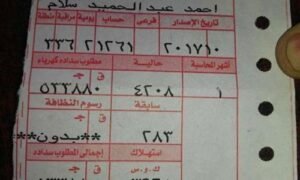 احمد عبد الحميد سلام
تاريخ الإصدار فرعى حساب يومية مراقبة منطقة
٢٠١٧١٠ ٢١٢٦١ ٣٣٦
أشهر المحاسبة حالية مطلوب سداده كهرباء
ج
١ ٤٢٠٨ ٥٣٣٨٨٠
سابقة رسوم النظافة
ج
٢٨٣ **بدون**
استهلاك إجمالى المطلوب سداده
ك.و.س ج